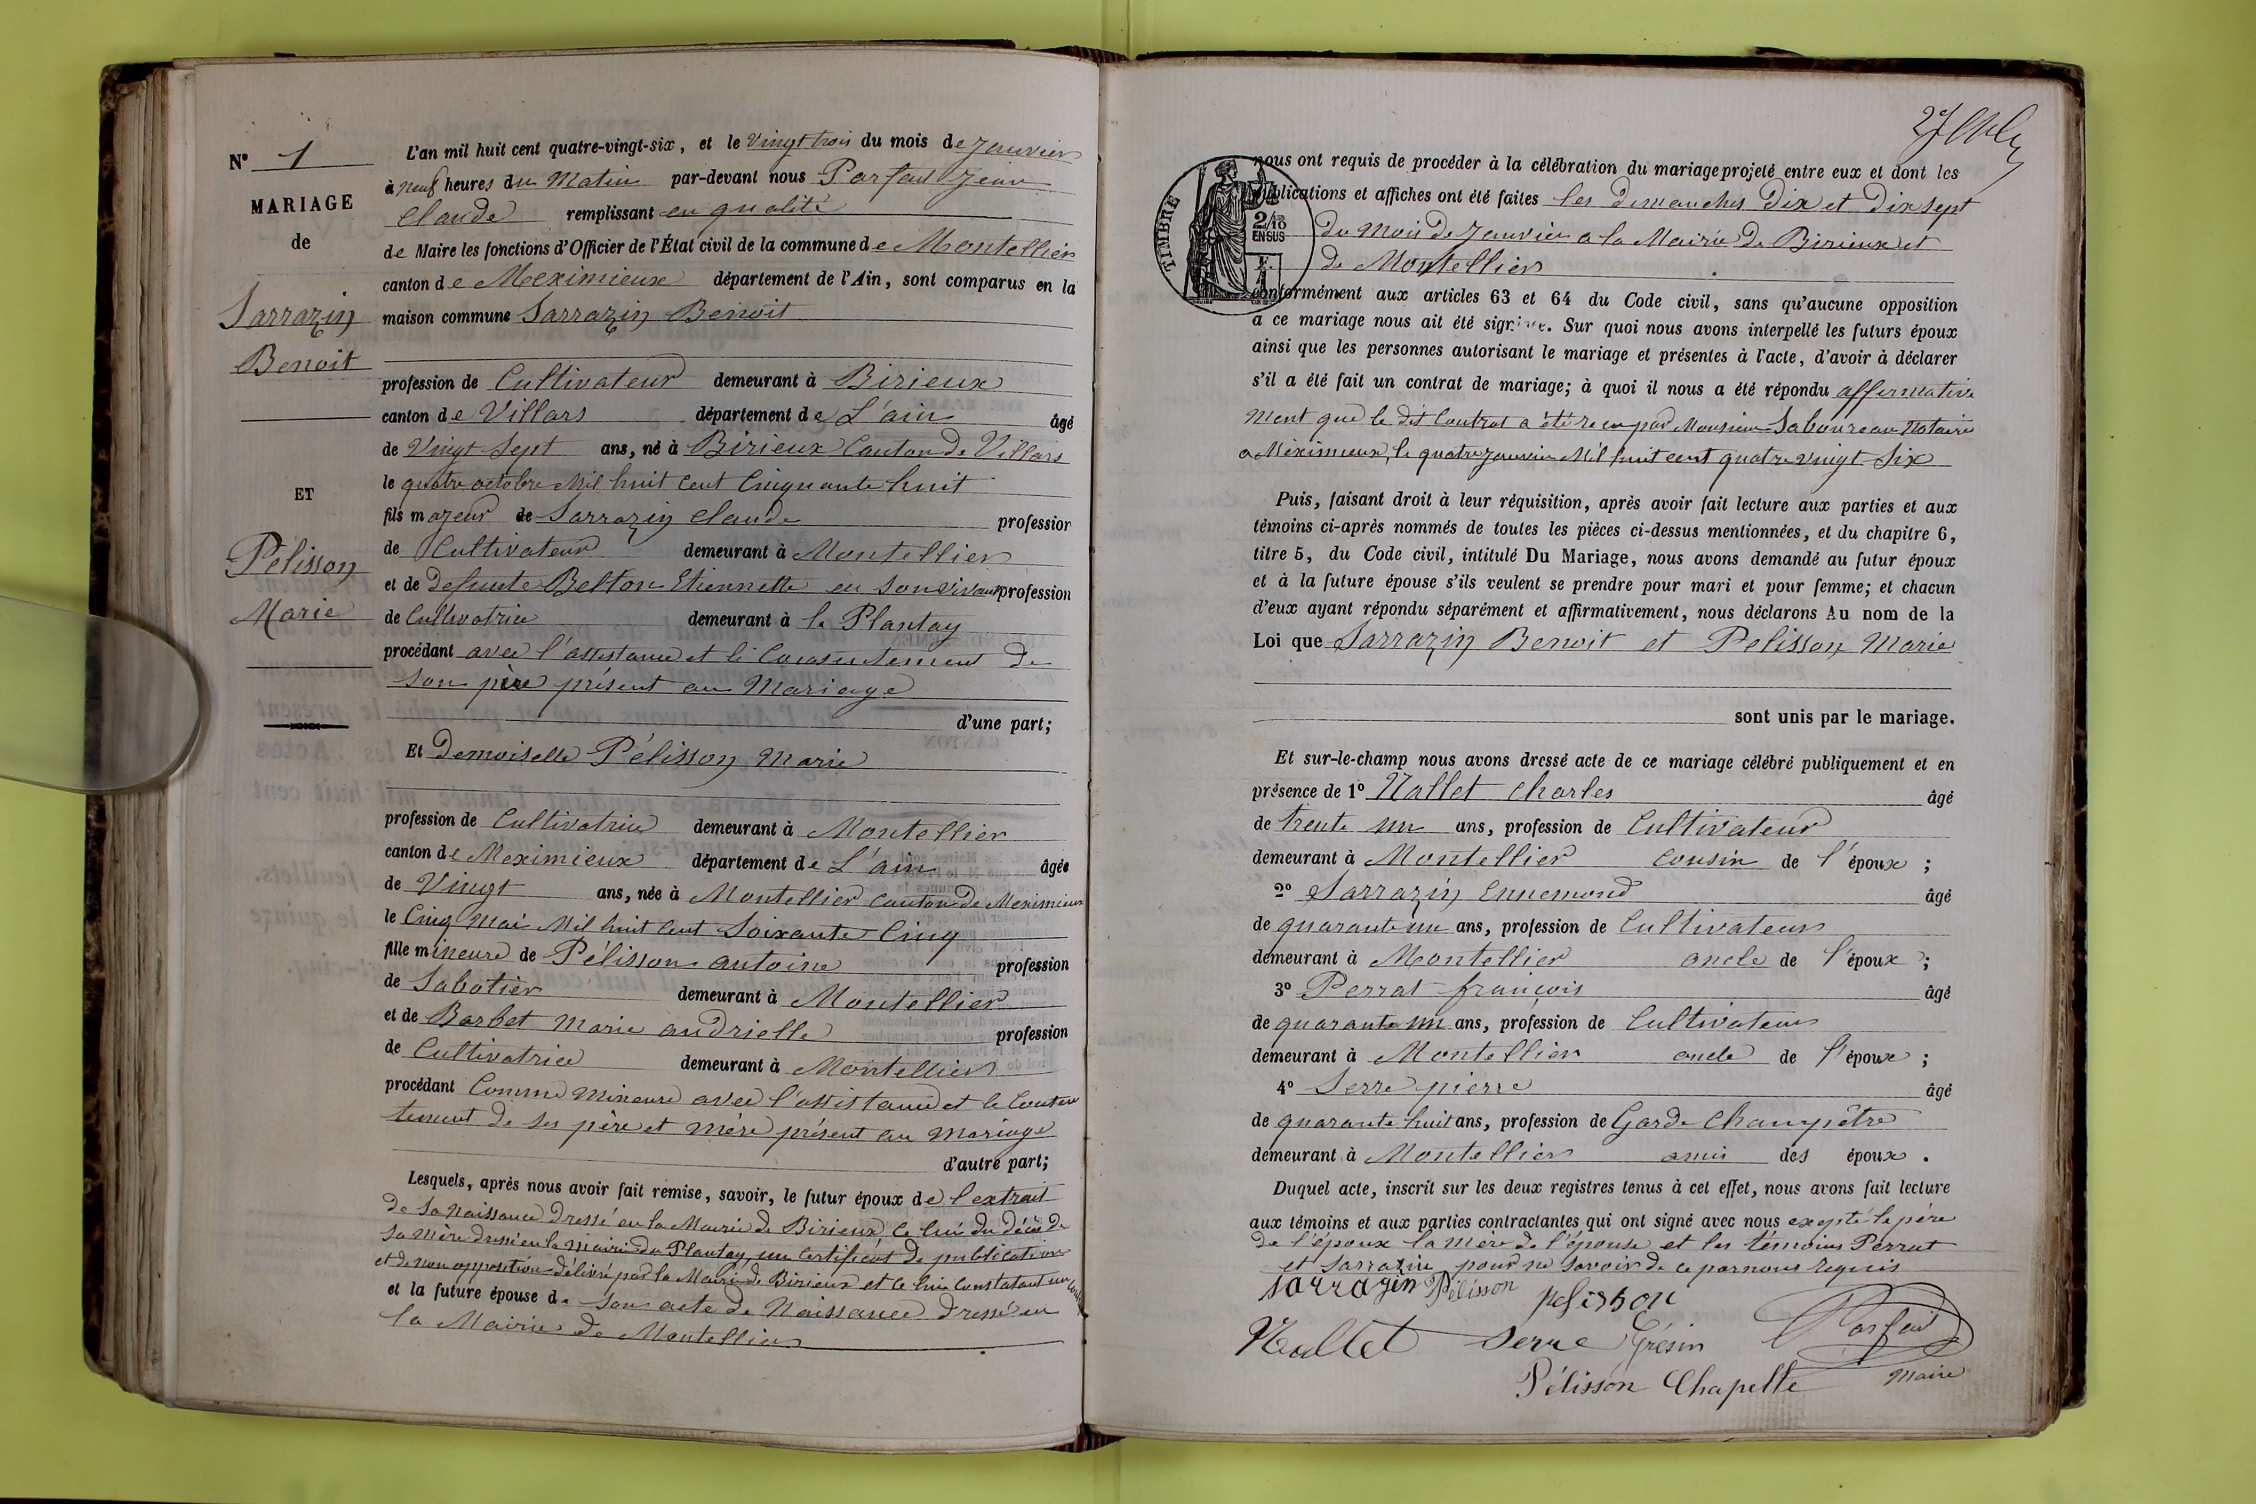 N° 1
MARIAGE
de
Sarrazin
Benoit
ET
Pélisson
Marie
L'an mil huit cent quatre-vingt-six, et le vingt trois du mois de Janvier
à neuf heures du Matin par-devant nous Parfait Jean
Claude remplissant en qualité
de Maire les fonctions d'Officier de l'État civil de la commune de Montellier
canton de Meximieux département de l'Ain, sont comparus en la
maison commune Sarrazin Benoit
profession de Cultivateur demeurant à Birieux
canton de Villars département de L'ain âgé
de Vingt Sept ans, né à Birieux Canton de Villars
le quatre octobre Mil huit Cent Cinquante huit
fils majeur de Sarrazin Claude profession
de Cultivateur demeurant à Montellier
et de defunte Belton Etiennette en son vivant profession
de Cultivatrice demeurant à le Plantay
procédant avec l'assistance et le Consentement de
son père présent au Mariage
d'une part;
Et Demoiselle Pélisson Marie
profession de Cultivatrice demeurant à Montellier
canton de Meximieux département de L'ain âgée
de Vingt ans, née à Montellier canton de Meximieux
le Cinq Mai Mil huit Cent Soixante Cinq
fille mineure de Pélisson antoine profession
de Sabotier demeurant à Montellier
et de Barbet Marie andrielle profession
de Cultivatrice demeurant à Montellier
procédant Comme Mineure avec l'assistance et le Consen
tement de ses père et mère présent au Mariage
d'autre part;
Lesquels, après nous avoir fait remise, savoir, le futur époux de l'extrait
de sa Naissance dressé en la Mairie de Birieux Ce lui du décès de
sa mère dressé en la Mairie du Plantay, un Certificat de publication
et de non opposition délivré par la Mairie de Birieux et ce lui Constatant un
et la future épouse de son acte de Naissance dressé en
la Mairie de Montellier
nous ont requis de procéder à la célébration du mariage projeté entre eux et dont les
publications et affiches ont été faites les dimanches dix et dix sept
TIMBRE
2/10
EN SUS
du mois de Janvier a la Mairie de Birieux et
de Montellier
conformément aux articles 63 et 64 du Code civil, sans qu'aucune opposition
a ce mariage nous ait été signifiée. Sur quoi nous avons interpellé les futurs époux
ainsi que les personnes autorisant le mariage et présentes à l'acte, d'avoir à déclarer
s'il a été fait un contrat de mariage; à quoi il nous a été répondu affermative
ment que le dit Contrat a été reçu par Monsieur Saboureau Notaire
a Méximieux, le quatre Janvier Mil huit cent quatre vingt Six
Puis, faisant droit à leur réquisition, après avoir fait lecture aux parties et aux
témoins ci-après nommés de toutes les pièces ci-dessus mentionnées, et du chapitre 6,
titre 5, du Code civil, intitulé Du Mariage, nous avons demandé au futur époux
et à la future épouse s'ils veulent se prendre pour mari et pour femme; et chacun
d'eux ayant répondu séparément et affirmativement, nous déclarons Au nom de la
Loi que Sarrazin Benoit et Pelisson Marie
sont unis par le mariage.
Et sur-le-champ nous avons dressé acte de ce mariage célébré publiquement et en
présence de 1° Nallet Charles âgé
de trente un ans, profession de Cultivateur
demeurant à Montellier cousin de l'époux ;
2° Sarrazin Ennemond âgé
de quarante un ans, profession de Cultivateur
demeurant à Montellier oncle de l'époux ;
3° Perrat françois âgé
de quarante un ans, profession de Cultivateur
demeurant à Montellier oncle de l'époux ;
4° Serre pierre âgé
de quarante huit ans, profession de Garde Champêtre
demeurant à Montellier amis des époux .
Duquel acte, inscrit sur les deux registres tenus à cet effet, nous avons fait lecture
aux témoins et aux parties contractantes qui ont signé avec nous excepté le père
de l'époux la mère de l'épouse et les témoins Perrat
et Sarrazin pour ne savoir de ce par nous requis
sarrazin Pélisson pelisson
Nallet Serre Grésin Parfait
Pélisson Chapelle Maire